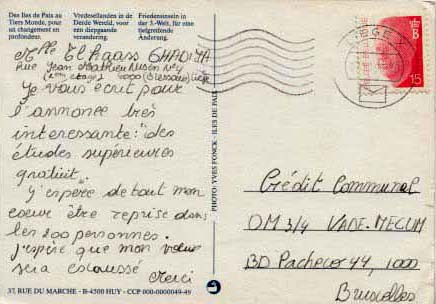 Des Iles de Paix au Tiers Monde, pour un changement en profondeur.
Vredeseilanden in de Derde Wereld, voor een diepgaande verandering.
Friedensinseln in der 3.-Welt, für eine tiefgreifende Änderung.
Mlle Elhaass GHADIYA
rue Jean Mathieu Nisen N°4
(1er etage) 4000 (Glessaire) Liège
Je vous écrit pour
l'annonce très
interessante: "des
études supérieures
gratuit".
J'espère de tout mon
coeur être reprise dans
les 200 personnes.
J'espère que mon vœux
sera exaussé
Merci
37, RUE DU MARCHE - B-4500 HUY - CCP 000-0000049-49
PHOTO: YVES FONCK - ILES DE PAIX
LIEGE
B
15
Crédit Communal
OM 3/4 VADE-MECUM
BD Pacheco 44, 1000
Bruxelles